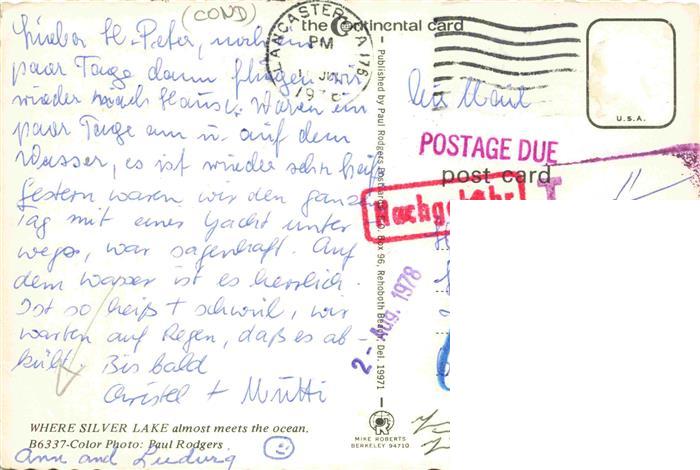 (COND)
Lieber H. Peter, noch ein
paar Tage dann fliegen wir
wieder nach Hause. Waren ein
paar Tage am u. auf dem
Wasser, es ist wieder sehr heiß
gestern waren wir den ganzen
Tag mit einer Yacht unter-
wegs, war sagenhaft. Auf
dem Wasser ist es herrlich.
Ist so heiß + schwül, wir
warten auf Regen, daß es ab-
kühlt. Bis bald
Christel + Mutti
WHERE SILVER LAKE almost meets the ocean.
B6337-Color Photo: Paul Rodgers
Ann and Ludwig
3
the Continental card
LANCASTER PA 176
PM
1978
Published by Paul Rodgers Box 96, Rehoboth Beach, Del. 19971
Via
U.S.A.
POSTAGE DUE
post card
T
Nachgebühr
2- Aug. 1978
MIKE ROBERTS
BERKELEY 94710